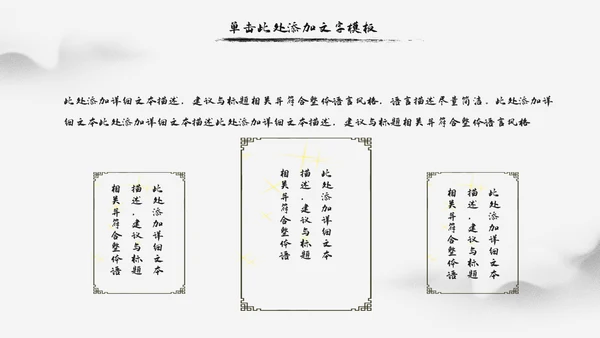 单击此处添加文字模板
此处添加详细文本描述，建议与标题相关并符合整体语言风格，语言描述尽量简洁，此处添加详
细文本此处添加详细文本描述此处添加详细文本描述，建议与标题相关并符合整体语言风格
此处添加详细文本
描述，建议与标题
相关并符合整体语
此处添加详细文本
描述，建议与标题
相关并符合整体语
此处添加详细文本
描述，建议与标题
相关并符合整体语